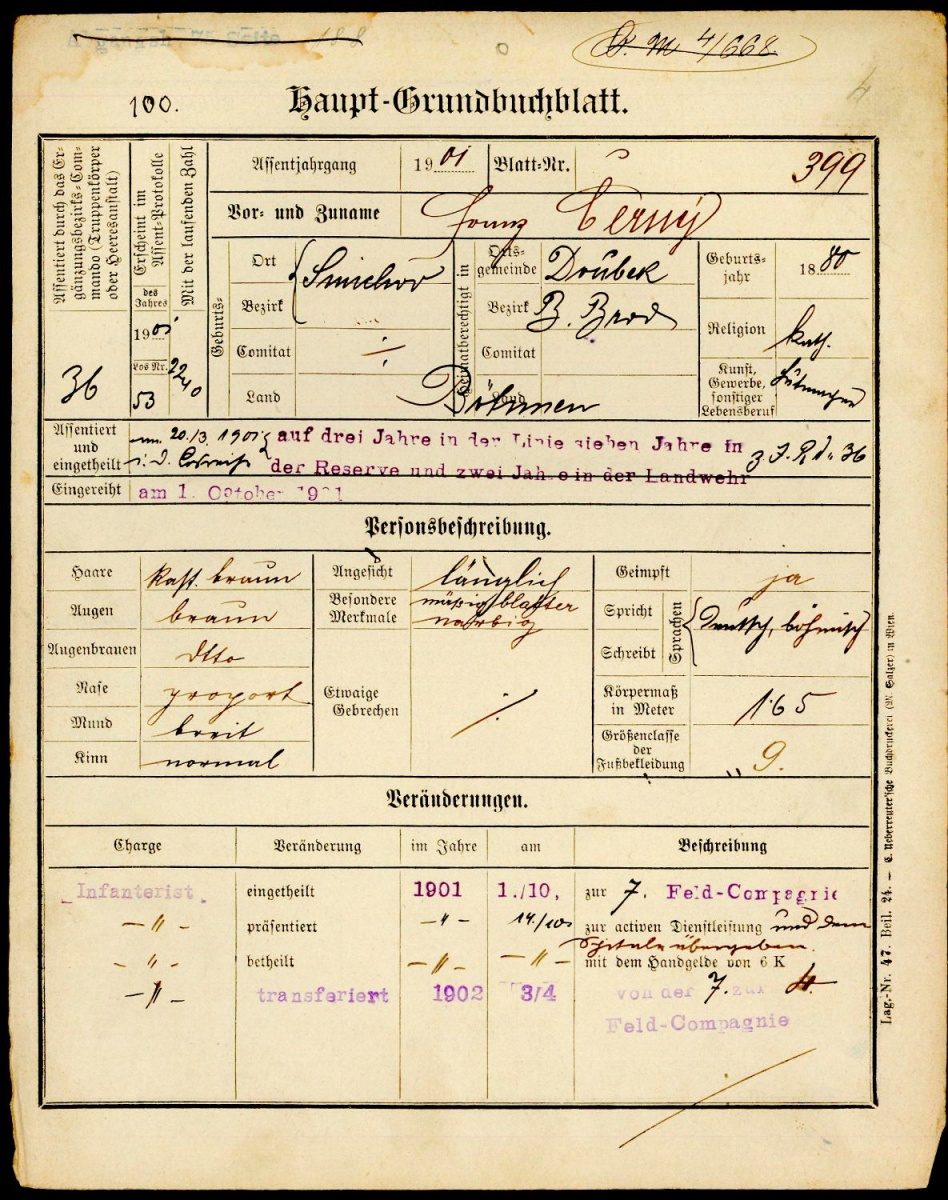 100.
Haupt-Grundbuchblatt.
4/668
4
Assentiert durch das Er-
gänzungsbezirks-Com-
mando (Truppenkörper
oder Heeresanstalt)
36
Erscheint im
Assent-Protokolle
des
Jahres
1901
Los Nr.
53
Mit der laufenden Zahl
2240
Assentjahrgang 1901 Blatt-Nr. 399
Vor- und Zuname Franz Černý
Geburts-
Ort Smichov
Bezirk
Comitat ·/·
Land Böhmen
Heimatberechtigt in
Orts-
gemeinde Doubek
Bezirk B. Brod
Comitat
Land
Geburts-
jahr 1880
Religion kath.
Kunst,
Gewerbe,
sonstiger
Lebensberuf
Assentiert
und
eingetheilt
am 20./3. 1901
auf drei Jahre in der Linie sieben Jahre in
der Reserve und zwei Jahre in der Landwehr
36
Eingereiht am 1. October 1901
Personsbeschreibung.
Haare kast. braun
Augen braun
Augenbrauen dtto
Nase proport
Mund breit
Kinn normal
Angesicht länglich
Besondere
Merkmale
mäßig blatter
narbig
Etwaige
Gebrechen ·/·
Geimpft ja
Spricht
Schreibt
Sprachen
deutsch, böhmisch
Körpermaß
in Meter 1·65
Größenclasse
der
Fußbekleidung 9.
Veränderungen.
Charge Veränderung im Jahre am Beschreibung
Infanterist eingetheilt 1901 1./10, zur 7. Feld-Compagnie
–"– präsentiert –"– 14/10 zur activen Dienstleistung und dem
Spitale übergeben.
–"– betheilt –"– –"– mit dem Handgelde von 6 K
–"– transferiert 1902 3/4 von der 7. zur 4.
Feld-Compagnie
Lag.-Nr. 47. Beil. 24. — C. Ueberreuter'sche Buchdruckerei (M. Salzer) in Wien.